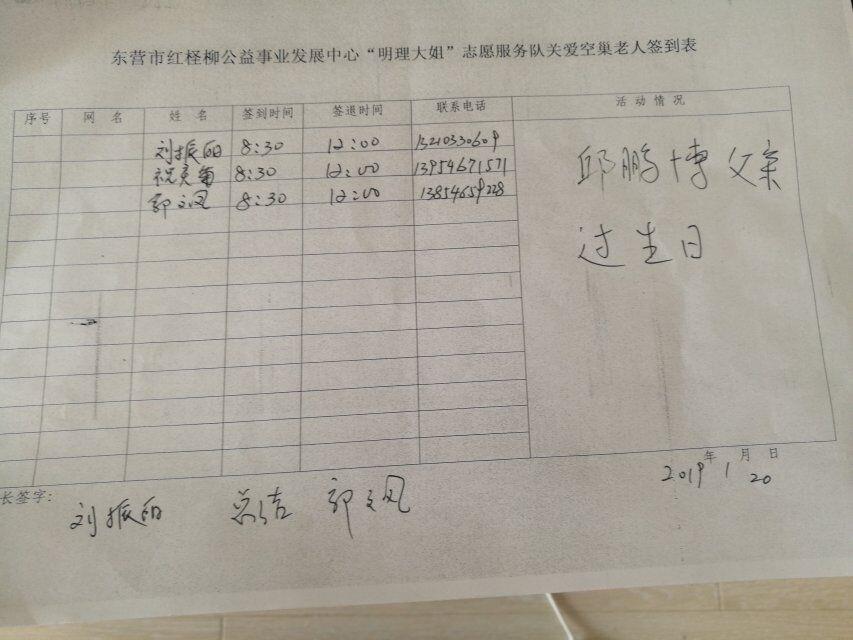 东营市红柽柳公益事业发展中心“明理大姐”志愿服务队关爱空巢老人签到表
序号 网 名 姓 名 签到时间 签退时间 联系电话 活 动 情 况
刘振丽 8:30 12:00 13210330609
8:30 12:00 13954671571
郭文凤 8:30 12:00 13854659228
邱鹏博父亲
过生日
年 月 日
2019 1 20
长签字:
刘振丽 总结 郭文凤